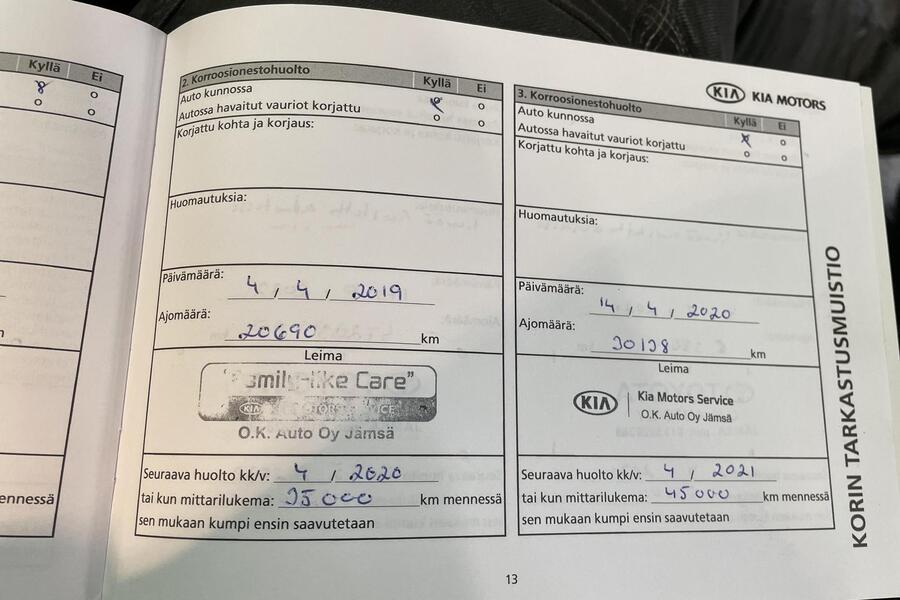 Kyllä Ei
2. Korroosionestohuolto Kyllä Ei
Auto kunnossa
Autossa havaitut vauriot korjattu
Korjattu kohta ja korjaus:
Huomautuksia:
Päivämäärä: 4 / 4 / 2019
Ajomäärä: 20690 km
Leima
"Family-like Care"
KIA MOTORS SERVICE
O.K. Auto Oy Jämsä
Seuraava huolto kk/v: 4 / 2020
tai kun mittarilukema: 35000 km mennessä
sen mukaan kumpi ensin saavutetaan
KIA KIA MOTORS
3. Korroosionestohuolto Kyllä Ei
Auto kunnossa
Autossa havaitut vauriot korjattu
Korjattu kohta ja korjaus:
Huomautuksia:
Päivämäärä: 14 / 4 / 2020
Ajomäärä: 30138 km
Leima
KIA Kia Motors Service
O.K. Auto Oy Jämsä
Seuraava huolto kk/v: 4 / 2021
tai kun mittarilukema: 45000 km mennessä
sen mukaan kumpi ensin saavutetaan
KORIN TARKASTUSMUISTIO
13